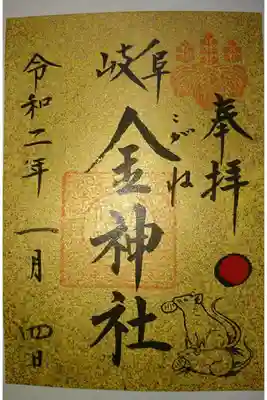 奉拝
岐阜
金神社
こがね
令和二年 一月 四日